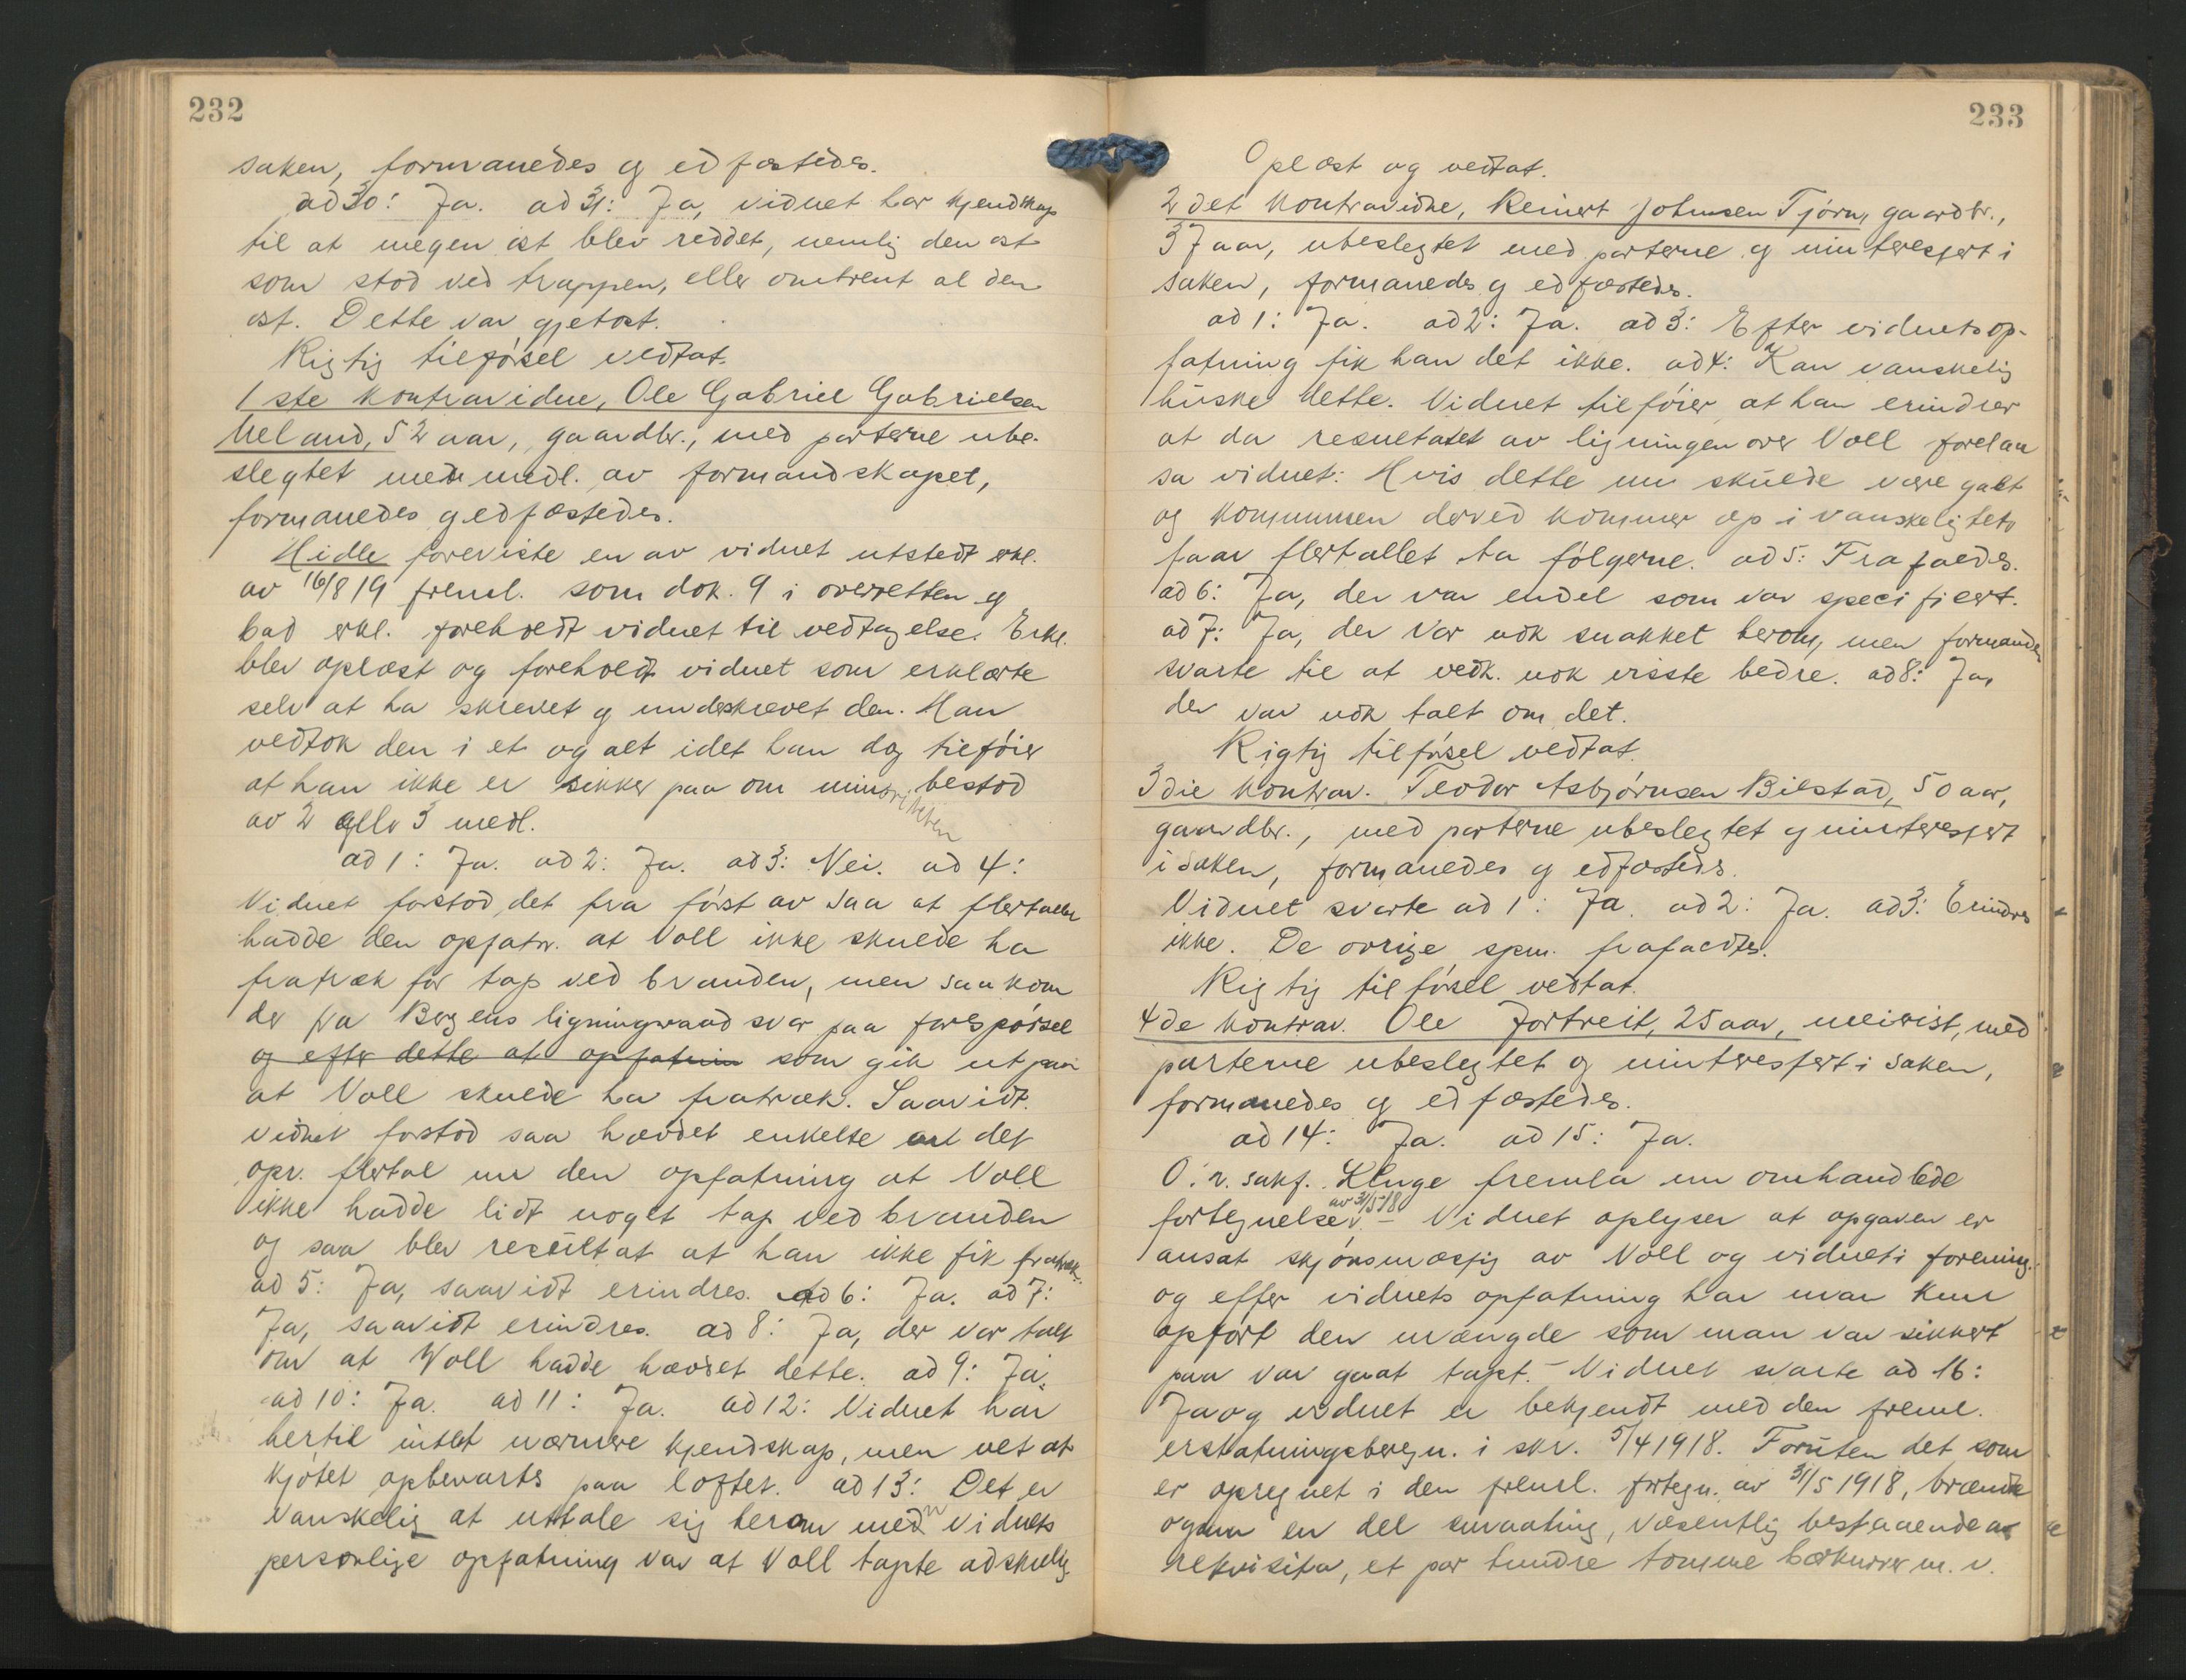 232
saken, formanedes og edfæstedes.
ad 30: Ja. ad 31: Ja, vidnet har kjendskap
til at megen ost blev reddet, nemlig den ost
som stod ved trappen, eller omtrent al den
ost. Dette var gjetost.
Rigtig tilførsel vedtat.
1ste kontravidne, Ole Gabriel Gabrielsen
Ueland, 52 aar, gaardbr., med parterne ube-
slegtet men medl. av formandskapet,
formanedes og edfæstedes.
Hidle foreviste en av vidnet utstedt erkl.
av 16/8 19 freml. som dok. 9 i overretten og
bad erkl. foreholdt vidnet til vedtagelse. Erkl.
blev oplæst og foreholdt vidnet som erklærte
selv at ha skrevet og underskrevet den. Han
vedtok den i et og alt idet han dog tilføier
at han ikke er sikker paa om minoriteten bestod
av 2 eller 3 medl.
ad 1: Ja. ad 2: Ja. ad 3: Nei. ad 4:
Vidnet forstod det fra først av saa at flertallet
hadde den opfatn. at Voll ikke skulde ha
fratræk for tap ved branden, men saa kom
der fra Bergens ligningsraad svar paa forespørsel
og efter dette at opfatnin som gik ut paa
at Voll skulde ha fratræk. Saavidt
vidnet forstod saa hævdet enkelte av det
opr. flertal nu den opfatning at Voll
ikke hadde lidt noget tap ved branden
og saa blev resultat at han ikke fik fratræk.
ad 5: Ja, saavidt erindres. ad 6: Ja. ad 7:
Ja, saavidt erindres. ad 8: Ja, der var talt
om at Voll hadde hævdet dette. ad 9: Ja.
ad 10: Ja. ad 11: Ja. ad 12: Vidnet har
hertil intet nærmere kjendskap, men vet at
kjøtet opbevartes paa loftet. ad 13: Det er
vanskelig at uttale sig herom men vidnets
personlige opfatning var at Voll tapte adskillig.
233
Oplæst og vedtat.
2det kontravidne, Reinert Johnsen Tjørn, gaardbr.,
37 aar, ubeslegtet med parterne og uinteressert i
saken, formanedes og edfæstedes.
ad 1: Ja. ad 2: Ja. ad 3: Efter vidnets op-
fatning fik han det ikke. ad 4: Kan vanskelig
huske dette. Vidnet tilføier at han erindrer
at da resultatet av ligningen over Voll forelaa
sa vidnet: Hvis dette nu skulde være galt
og kommunen derved kommer op i vanskeligheter
faar flertallet ta følgerne. ad 5: Frafaldes.
ad 6: Ja, der var endel som var specificert.
ad 7: Ja, der var nok snakket herom, men formanden
svarte til at vedk. nok visste bedre. ad 8: Ja,
der var nok talt om det.
Rigtig tilførsel vedtat.
3die kontrav. Teodor Asbjørnsen Bilstad, 50 aar,
gaardbr., med parterne ubeslegtet og uinteressert
i saken, formanedes og edfæstedes.
Vidnet svarte ad 1: Ja. ad 2: Ja. ad 3: Erindres
ikke. De øvrige spm. frafaldtes.
Rigtig tilførsel vedtat.
4de kontrav. Ole Jortveit, 25 aar, meierist, med
parterne ubeslegtet og uinteressert i saken,
formanedes og edfæstedes.
ad 14: Ja. ad 15: Ja.
O.r. sakf. Kluge fremla nu omhandlede
fortegnelse av 31/5 18. – Vidnet oplyser at opgaven er
ansat skjønsmæssig av Voll og vidnet i forening.
og efter vidnets opfatning har man kun
opført den mængde som man var sikkert
paa var gaat tapt. – Vidnet svarte ad 16:
Ja og vidnet er bekjendt med den freml.
erstatningsberegn. i skr. 5/4 1918. Foruten det som
er opregnet i den freml. fortegn. av 31/5 1918, brændte
ogsaa en del smaating, væsentlig bestaaende av
rekvisita, et par hundre tomme bærkurver m. v.